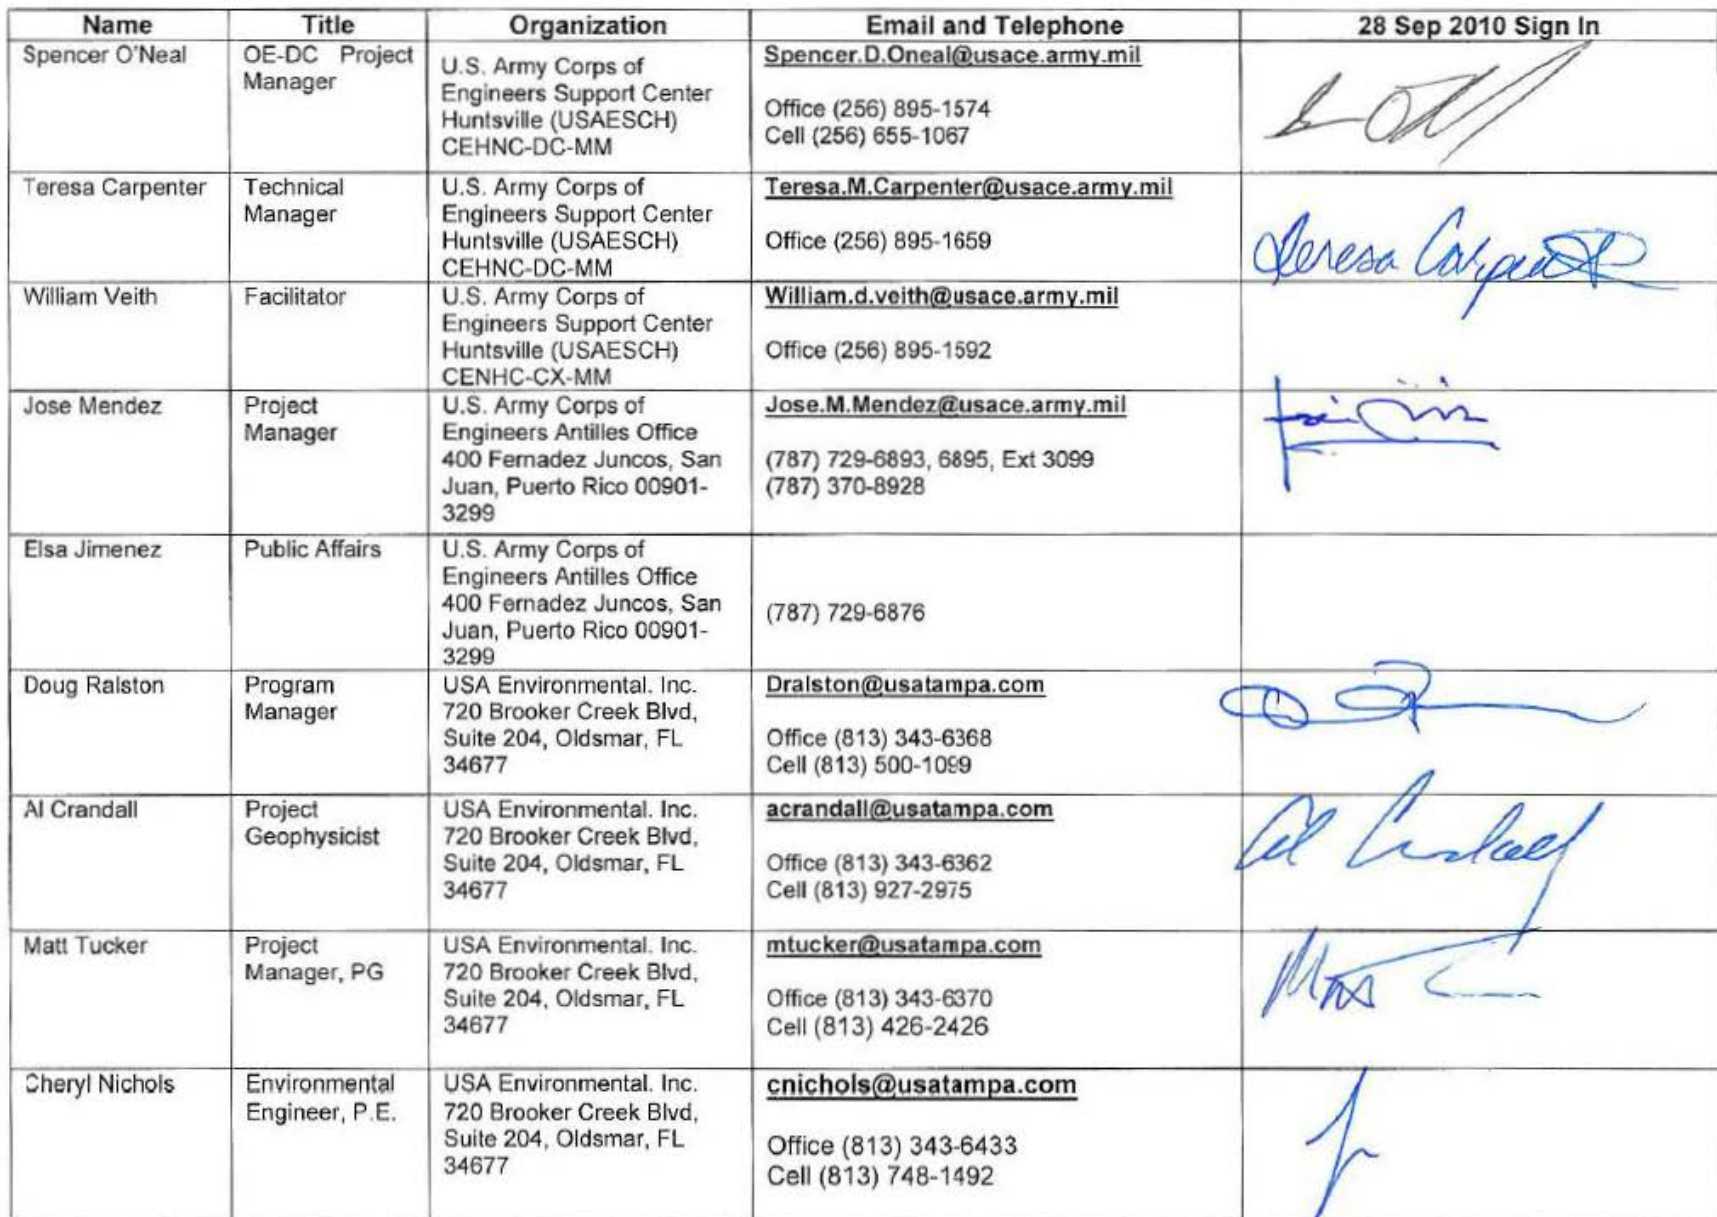 Name Title Organization Email and Telephone 28 Sep 2010 Sign In
Spencer O'Neal
OE-DC Project
Manager
U.S. Army Corps of
Engineers Support Center
Huntsville (USAESCH)
CEHNC-DC-MM
Spencer.D.Oneal@usace.army.mil
Office (256) 895-1574
Cell (256) 655-1067
Teresa Carpenter
Technical
Manager
U.S. Army Corps of
Engineers Support Center
Huntsville (USAESCH)
CEHNC-DC-MM
Teresa.M.Carpenter@usace.army.mil
Office (256) 895-1659
Teresa Carpenter
William Veith
Facilitator
U.S. Army Corps of
Engineers Support Center
Huntsville (USAESCH)
CENHC-CX-MM
William.d.veith@usace.army.mil
Office (256) 895-1592
Jose Mendez
Project
Manager
U.S. Army Corps of
Engineers Antilles Office
400 Fernadez Juncos, San
Juan, Puerto Rico 00901-
3299
Jose.M.Mendez@usace.army.mil
(787) 729-6893, 6895, Ext 3099
(787) 370-8928
Elsa Jimenez
Public Affairs
U.S. Army Corps of
Engineers Antilles Office
400 Fernadez Juncos, San
Juan, Puerto Rico 00901-
3299
(787) 729-6876
Doug Ralston
Program
Manager
USA Environmental. Inc.
720 Brooker Creek Blvd,
Suite 204, Oldsmar, FL
34677
Dralston@usatampa.com
Office (813) 343-6368
Cell (813) 500-1099
Al Crandall
Project
Geophysicist
USA Environmental. Inc.
720 Brooker Creek Blvd,
Suite 204, Oldsmar, FL
34677
acrandall@usatampa.com
Office (813) 343-6362
Cell (813) 927-2975
Al Crandall
Matt Tucker
Project
Manager, PG
USA Environmental. Inc.
720 Brooker Creek Blvd,
Suite 204, Oldsmar, FL
34677
mtucker@usatampa.com
Office (813) 343-6370
Cell (813) 426-2426
Cheryl Nichols
Environmental
Engineer, P.E.
USA Environmental. Inc.
720 Brooker Creek Blvd,
Suite 204, Oldsmar, FL
34677
cnichols@usatampa.com
Office (813) 343-6433
Cell (813) 748-1492